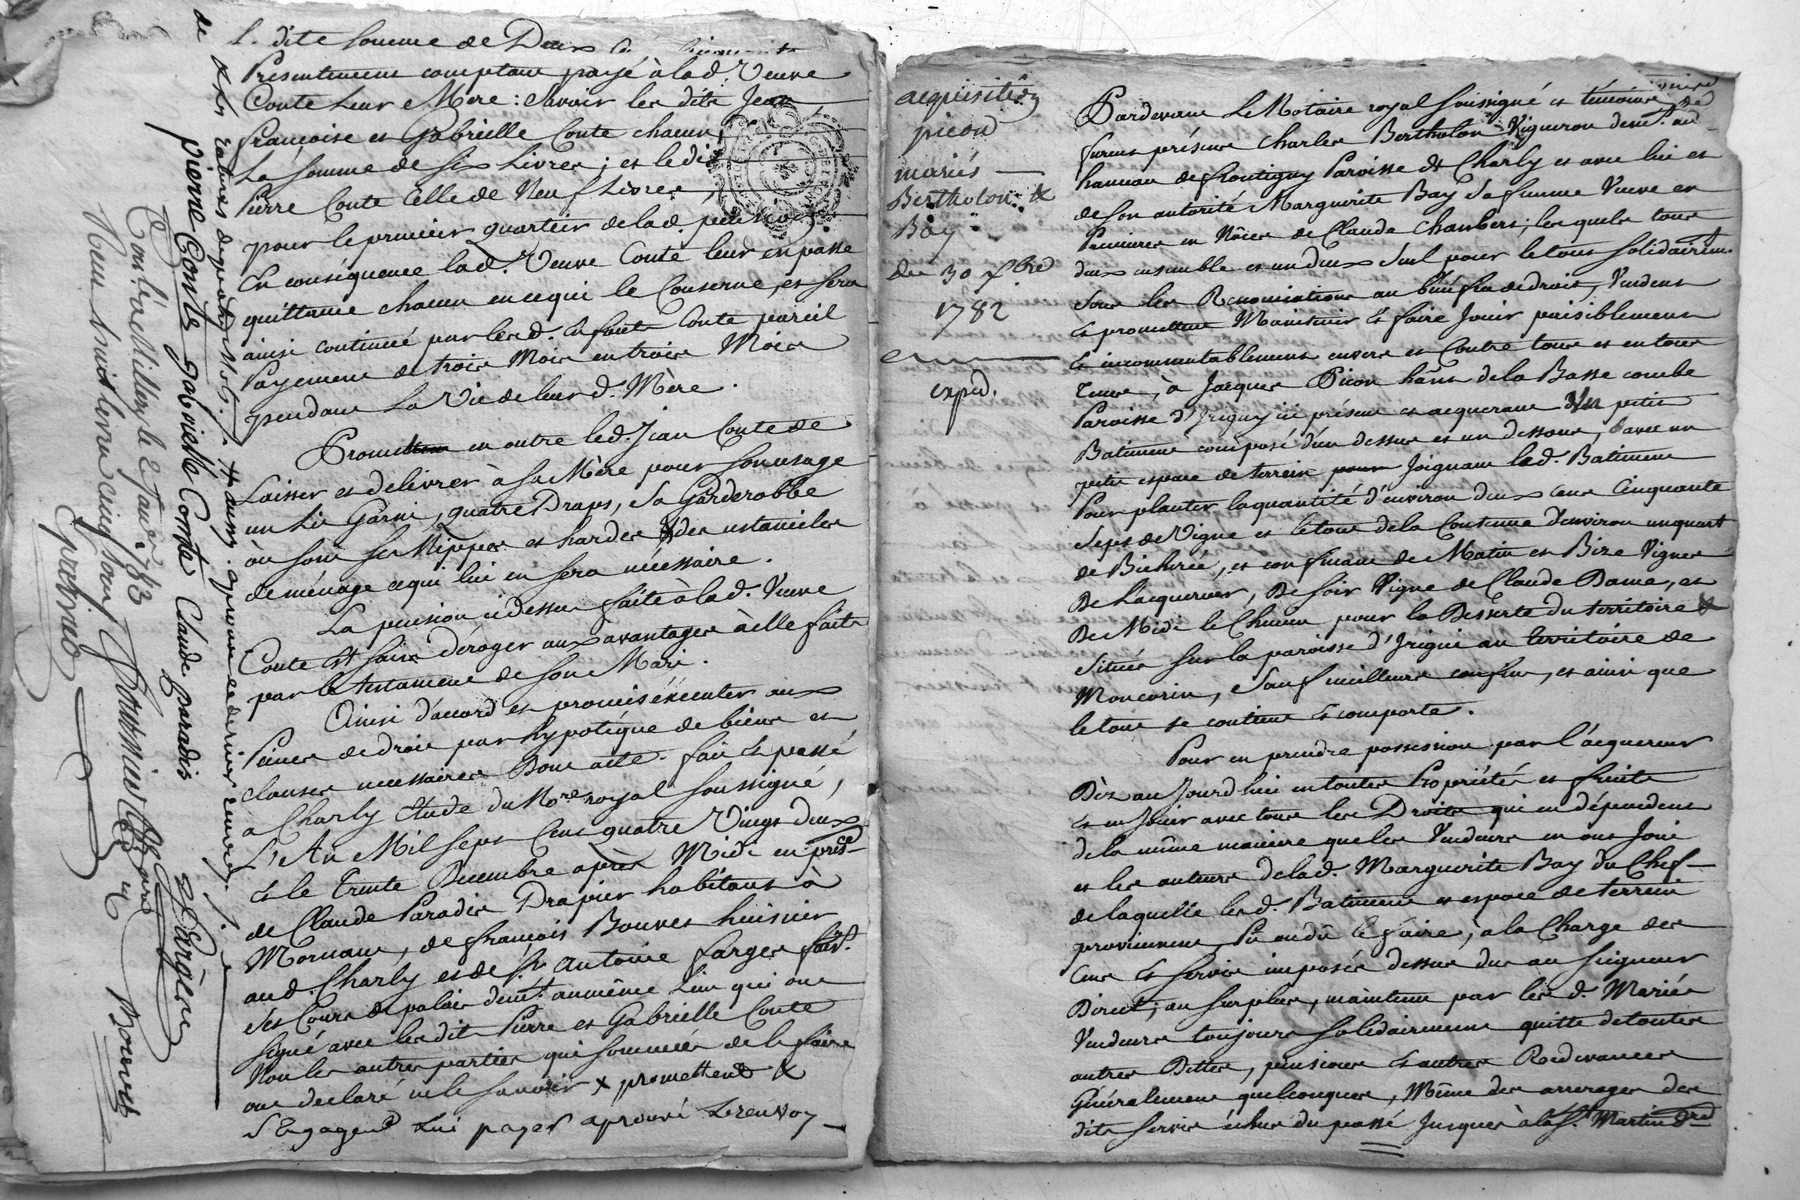 dite somme de Deux
Présentement comptant payé à lad. Veuve
Conte Leur Mere: Savoir les dits Jean
françoise et Gabrielle Conte chacun
La somme de six Livres; et ledit
Pierre Conte Celle de Neuf Livres,
pour le premier quartier de lad. pension
En conséquence lad. Veuve Conte leur en passe
quittance chacun en ce qui le Concerne, et sera
ainsi continué par lesd. Enfants Conte pareil
Payement de trois Mois en trois Mois
pendant La Vie de leurd. Mère.
Promettant en outre led. Jean Conte de
Laisser et délivrer à sa Mère pour son usage
un Lit Garni, quatre Draps, Sa Garderobbe
ou sont ses Nippes et hardes & des ustanciles
de ménage ce qui lui en sera nécéssaire.
La pension ci dessus faite à lad. Veuve
Conte Est sans Déroger aux avantages à elle faits
par le testament de son Mari.
Ainsi d'accord et promis éxécuter aux
Peines de droit par hypotéque de biens et
clauses necessaires Dont acte. fait Et passé
à Charly Etude du Nore. royal soussigné,
L'An Mil Sept Cent quatre Vingt deux
Et le Trente Decembre après Midi en présce.
de Claude Paradis Drapier habitant à
Mornant, de françois Bouvet huissier
aud. Charly et de Sr. Antoine Farges
des Cours de palais demt. au même Lieu qui ont
signé avec lesdit Pierre et Gabrielle Conte
Non les autres parties qui sommées de le faire
ont declaré ne le savoir x promettent &
S'Engagent Lui payer aprouvé Le renvoy
de
pierre Conte gabrielle Conte Claude paradis
Farges
Bouvet
Controlé à Millery le 2 Janer 1783
Reçu huit livres cinq sous
acquisition
picon
mariés
Bertholon &
Bay
du 30 Xbre
1782
expd.
Pardevant Le Notaire royal soussigné et témoins
furent présent Charles Bertholon Vigneron demt. au
hameau de frontigny Paroisse de Charly et avec lui et
de son autorité Marguerite Bay sa femme Veuve en
Premieres en Nôces de Claude Chambert; les quels tous
deux ensemble et un deux seul pour le tous solidairemt.
Sous les Renonciations au bénéfice de droit, Vendent
Et promettent Maintenir Et faire Jouir paisiblement
Et incommutablement envers et Contre tous et en tous
Tems, à Jacques Picon habt. de la Basse combe
Paroisse d'Irigny ici présent et acquerant Un petit
Batiment composé d'un dessus et un dessous, avec un
petit espace de terrein pour Joignant led. Batiment
Pour planter la quantité d'environ deux cent Cinquante
Seps de Vigne et le tout de la Contenue d'environ un quart
de Bicherée, et confinant de Matin et Bize Vigne
De L'acquereur, De soir Vigne de Claude Dame, et
De Midi le Chemin pour la Desserte du territoire &
située sur la paroisse d'Irigni au territoire de
Moncorin, Sauf meilleurs confins, et ainsi que
le tout se contient Et comporte.
Pour en prendre possession par l'acquereur
Dèz au Jourd'hui en toutes Propriétés et fruits
Et en Jouir avec tous les Droits qui en dépendent
de la même maniere que les Vendeurs en ont Joui
et les auteurs de lad. Marguerite Bay du Chef
de laquelle lesd. Batiment et espace de terrein
proviennent, Pû ou dû Le faire, à la Charge des
Cens Et servis imposés dessus dus au seigneur
Direct; au surplus, maintenu par lesd. Mariés
Vendeurs toujours solidairement quitte de toutes
autres Dettes, pensions Et autres Redevances
Généralement quelconques, Même des arrerages des
dits servis échus du passé Jusques à la St. Martin Dre